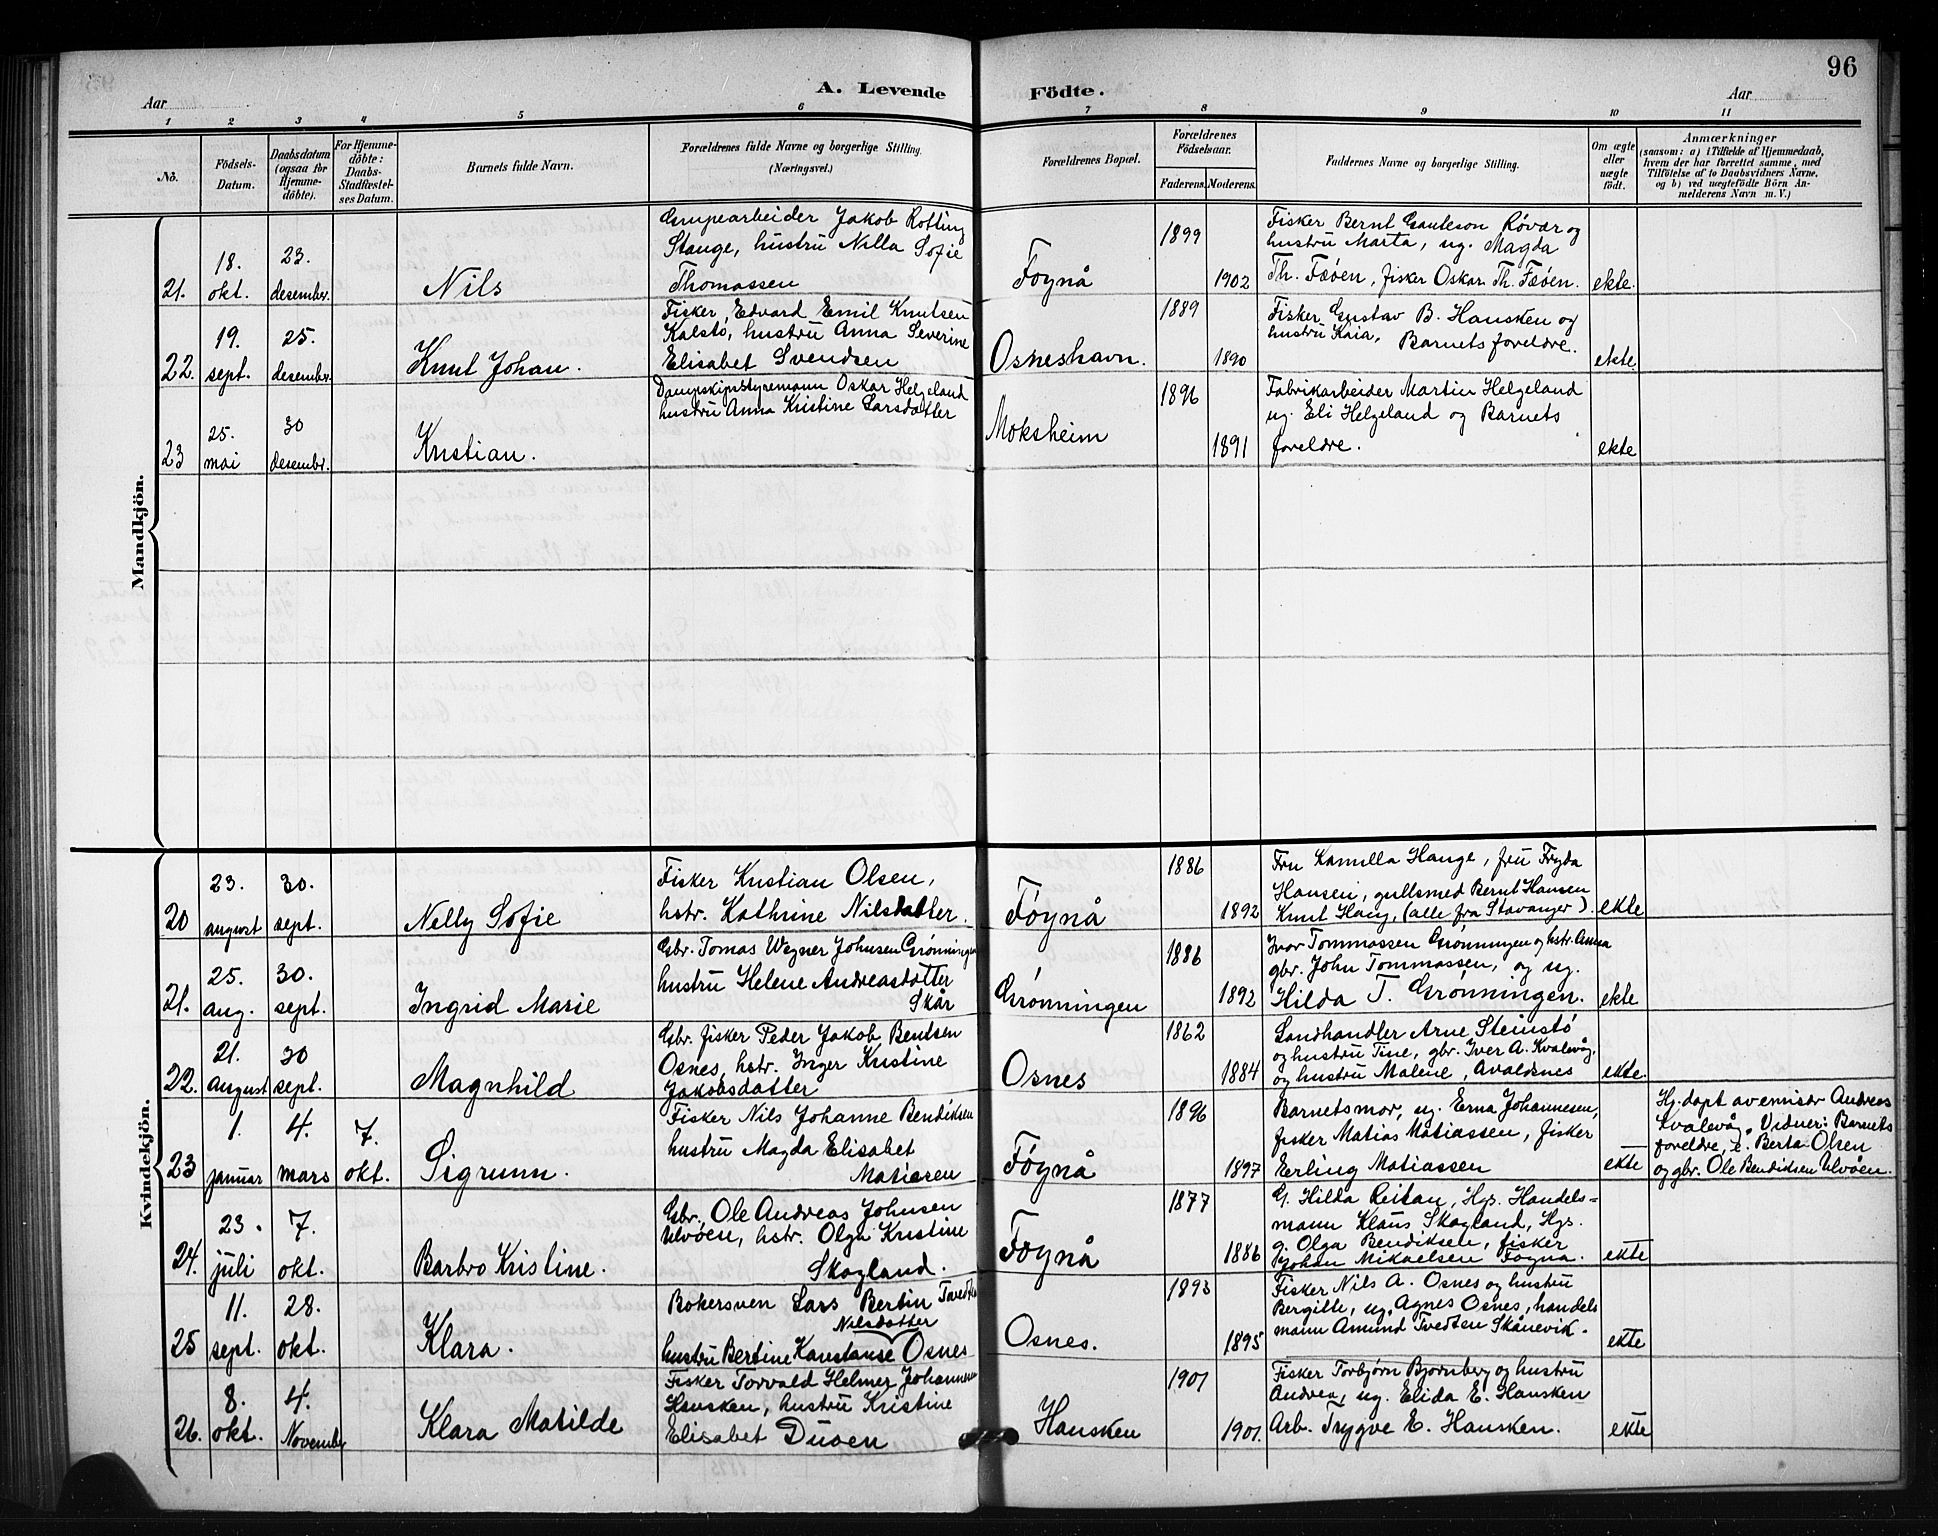 96
A. Levende Födte.
Aar
Aar
1 2 3 4 5 6 7 8 9 10 11
No.
Födsels-Datum.
Daabsdatum (ogsaa for Hjemme-döbte).
For Hjemme-döbte: Daabs-Stadfæstel-ses Datum.
Barnets fulde Navn.
Forældrenes fulde Navne og borgerlige Stilling.
(Næringsvei.)
Forældrenes Bopæl.
Forældrenes Födselsaar.
Faderens. Moderens.
Faddernes Navne og borgerlige Stilling.
Om ægte eller uægte födt.
Anmærkninger
(saasom: a) i Tilfælde af Hjemmedaab,
hvem der har forrettet samme, med
Tilföielse af to Daabsvidners Navne,
og b) ved uægtefödte Börn An-
melderens Navn m. V.)
Mandkjön.
21. 18. okt. 23. desember. Nils
Grupearbeider Jakob Rotting
Stange, hustru Nilla Sofie
Thomassen
Føynå 1899 1902
Fisker Bernt Gauteson Røvær og
hustru Marta, ug. Magda
Th. Fæøen, fisker Oskar Th. Fæøen.
ekte.
22. 19. sept. 25. desember. Knut Johan.
Fisker, Edvard Emil Knutsen
Kalstø, hustru Anna Severine
Elisabet Svendsen
Osneshavn. 1889 1890
Fisker Gustav B. Hansken og
hustru Kaia, Barnets foreldre.
ekte
23 25. mai 30 desembr. Kristian.
Dampskipstyremann Oskar Helgeland
hustru Anna Kristine Larsdatter
Moksheim 1896 1891
Fabrikarbeider Martin Helgeland
ug. Eli Helgeland og Barnets
foreldre.
ekte
Kvindekjön.
20 23. august 30. sept. Nelly Sofie
Fisker Kristian Olsen,
hstr. Kathrine Nilsdatter.
Føynå 1886 1892
Fru Kamilla Hauge, fru Fryda
Hansen, gullsmed Bernt Hansen
Knut Haug, (alle fra Stavanger).
ekte
21. 25. aug. 30. sept. Ingrid Marie
Gbr. Tomas Wegner Johnsen Grønningen
hustru Helene Andreasdatter
Skår
Grønningen 1886 1892
Ivar Tommassen Grønningen og hstr. Anna
gbr. John Tommassen, og ug.
Hilda T. Grønningen.
ekte
22. 21. august 30 sept. Magnhild
Gbr. fisker Peder Jakob Bentsen
Osnes, hstr. Inger Kristine
Jakobsdatter
Osnes 1862 1884
Landhandler Arne Steinstø
og hustru Tine, gbr. Iver A. Kvalevåg,
og hustru Malene, Avaldsnes
ekte.
23 1. januar 4. mars 7. okt. Sigrunn.
Fisker Nils Johanne Bendiksen
hustru Magda Elisabet
Matiasen
Føynå 1896 1897
Barnets mor, ug. Erna Johannesen,
fisker Matias Matiassen, fisker
Erling Matiassen
ekte
Hj.døpt av emisær Andreas
Kvalevåg. Vidner: Barnets
foreldre, e. Berta Olsen
og gbr. Ole Bendiksen Ulvøen.
24. 23. juli 7. okt. Barbro Kristine.
Gbr. Ole Andreas Johnsen
Ulvøen, hstr. Olga Kristine
Skogland.
Føynå 1877 1886
G. Hilda Reitan, Hgs. Handels=
mann Klaus Skogland, Hgs.
g. Olga Bendiksen, fisker
Johan Mikaelsen Føyna.
ekte
25 11. sept. 28. okt. Klara.
Bøkersven Lars Bertin Tvedten
Nilsdatter
hustru Bertine Konstanse Osnes
Osnes. 1893 1895
Fisker Nils A. Osnes og hustru
Bergitte, ug. Agnes Osnes, handels
mann Amund Tvedten Skånevik.
ekte
26. 8. okt. 4. November Klara Matilde
Fisker Torvald Helmer Johannesen
Hansken, hustru Kristine
Elisabet Duøen
Hansken 1901 1901.
Fisker Torbjørn Bjørnberg og hustru
Andrea, ug. Elida E. Hansken
Arb. Trygve E. Hansken.
ekte